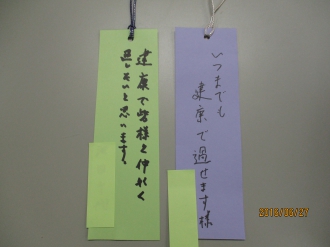 建康で皆様と仲れく
過しいと思います。
いつまでも
建康で過せます様
2018/06/27